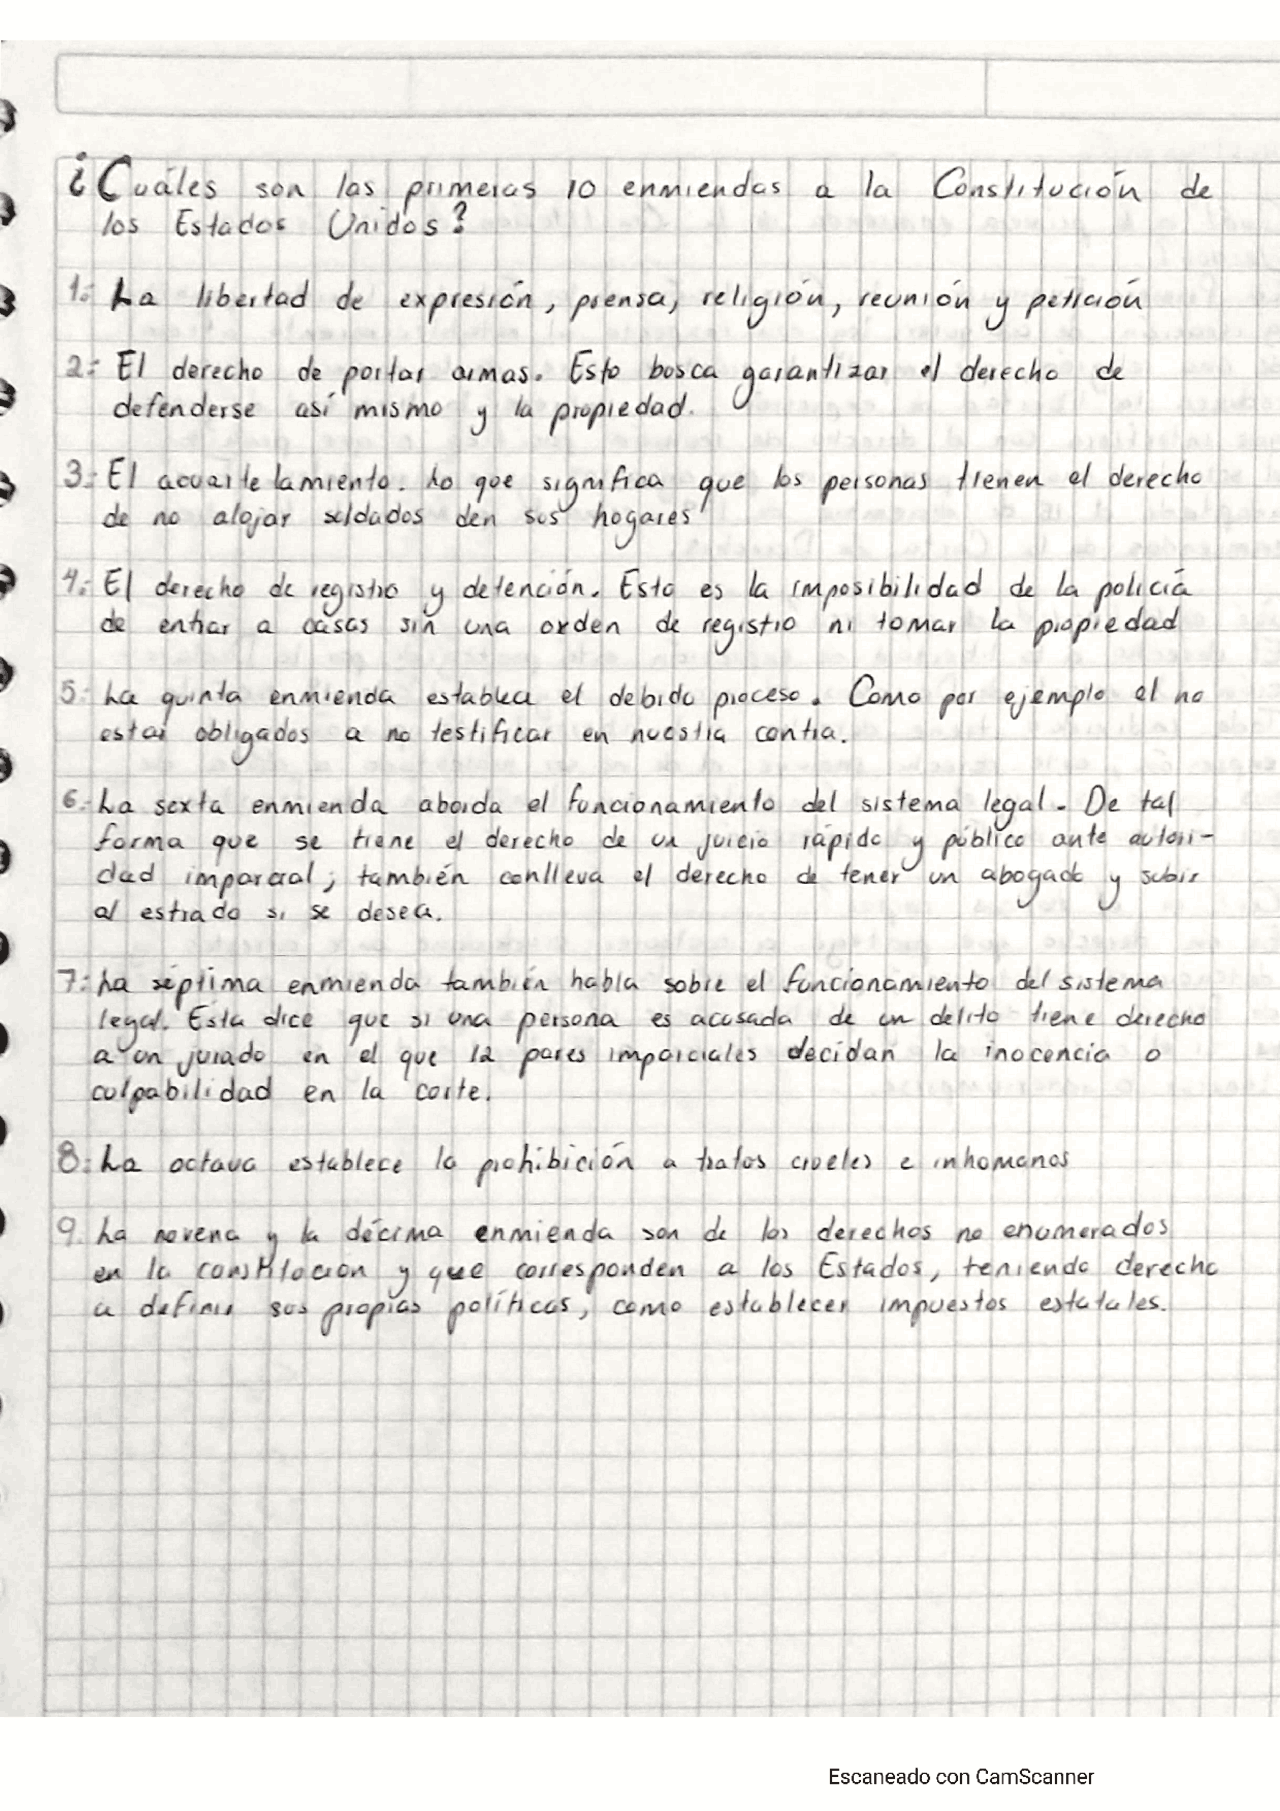 ¿Cuáles son las primeras 10 enmiendas a la Constitución de
los Estados Unidos?
1: La libertad de expresión, prensa, religión, reunión y petición
2: El derecho de portar armas. Esto busca garantizar el derecho de
defenderse así mismo y la propiedad.
3: El acuartelamiento. Lo que significa que las personas tienen el derecho
de no alojar soldados den sus hogares
4: El derecho de registro y detención. Esto es la imposibilidad de la policía
de entrar a casas sin una orden de registro ni tomar la propiedad
5: La quinta enmienda establece el debido proceso. Como por ejemplo el no
estar obligados a no testificar en nuestra contra.
6: La sexta enmienda aborda el funcionamiento del sistema legal. De tal
forma que se tiene el derecho de un juicio rápido y público ante autori-
dad imparcial; también conlleva el derecho de tener un abogado y subir
al estrado si se desea.
7: La séptima enmienda también habla sobre el funcionamiento del sistema
legal. Esta dice que si una persona es acusada de un delito tiene derecho
a un jurado en el que 12 pares imparciales decidan la inocencia o
culpabilidad en la corte.
8: La octava establece la prohibición a tratos crueles e inhumanos
9. La novena y la décima enmienda son de los derechos no enumerados
en la constitución y que corresponden a los Estados, teniendo derecho
a definir sus propias políticas, como establecer impuestos estatales.
Escaneado con CamScanner